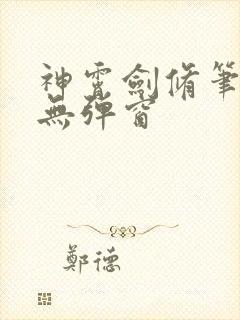 神霄劍脩筆
無彈窗
鄭德